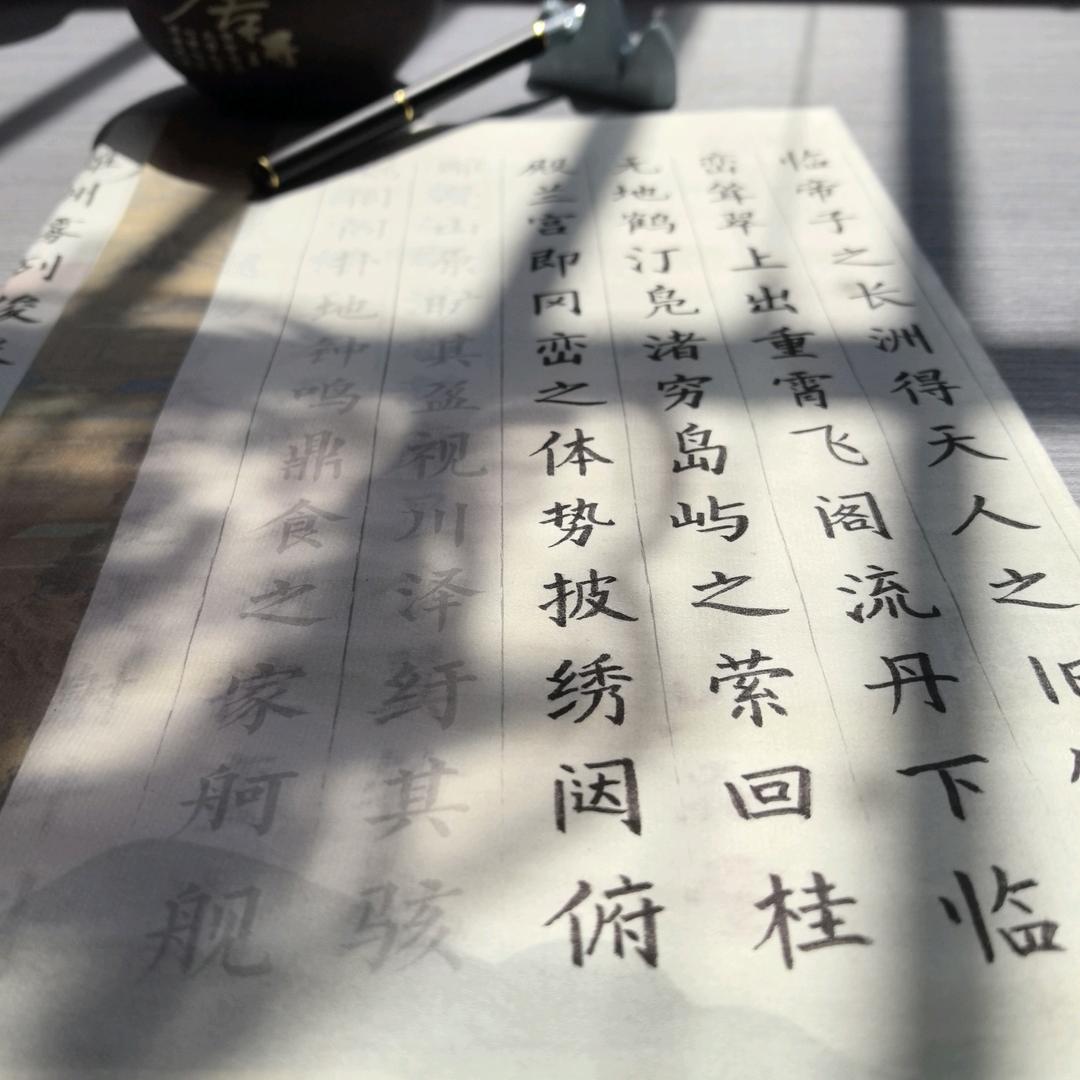 临帝子之长洲得天人之旧
峦耸翠上出重霄飞阁流丹下临
无地鹤汀凫渚穷岛屿之萦回桂
殿兰宫即冈峦之体势披绣闼俯
雕甍山原旷其盈视川泽纡其骇
闾阎扑地钟鸣鼎食之家舸舰
州雾列俊